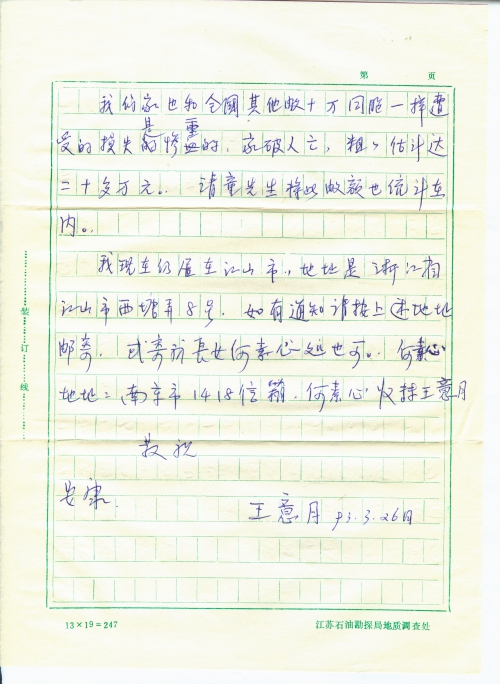 第　页
我们家也和全國其他数十万同胞一样遭
受的损失是惨重的，家破人亡，粗々估计达
二十多万元。请童先生将此数额也统计在
内。
我现在仍居在江山市，地址是浙江省
江山市西塘弄8号。如有通知请按上述地址
邮寄，或寄我長女何素心处也可。何素心
地址：南京市1418信箱，何素心收转王意月
敬祝
安康。
王意月 93.3.26日
装订线
13×19=247
江苏石油勘探局地质调查处